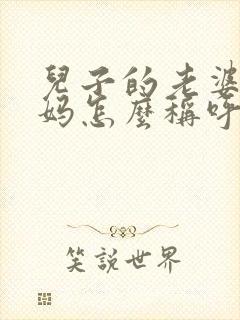 兒子的老婆
媽怎麼稱呼
笑說世界